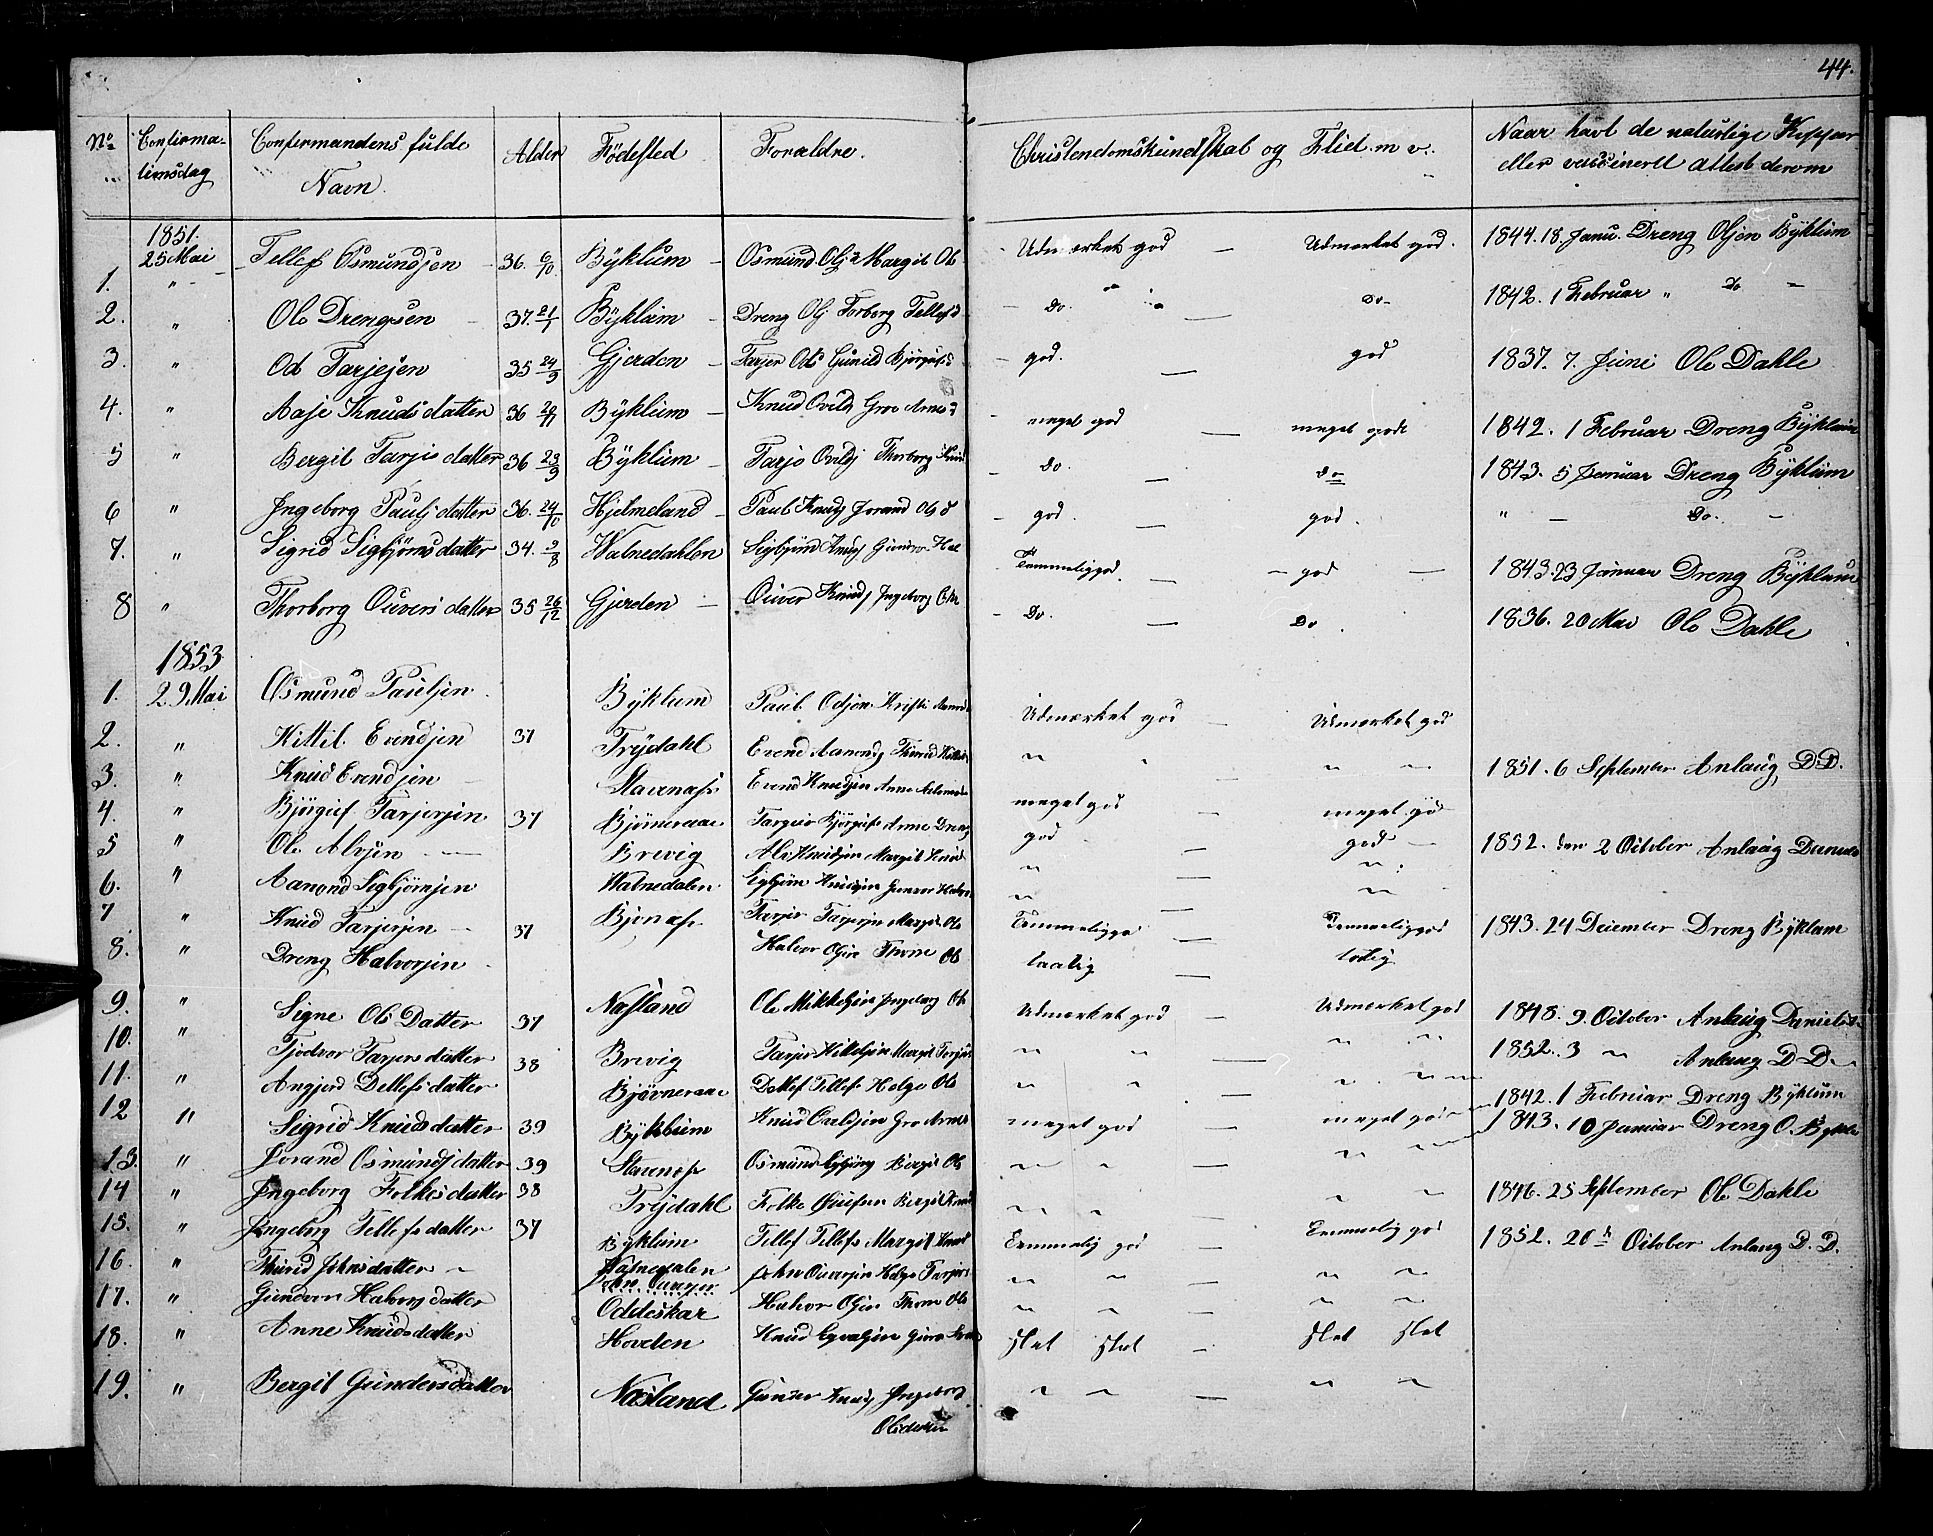 44.
No Confirma- Confermandens fulde Alder Fødested Forældre. Christendomskundskab og Flid m v. Naar havt de naturlige Kopper
tionsdag Navn. eller vassinert attest derom
1851.
1. 25 Mai Tellef Osmundsen 36. 6/10 Býklum Osmund Ols: Margit Ols Udmærket god Udmærket god. 1844. 18. Janu. Dreng Olsen Býklum
2. " Ole Drengsen 37. 21/1 Býklum Dreng Ols Torborg Tellefsd Do. Do 1842. 1 Februar " Do
3. " Od Tarjesen 35 24/9 Gjerden Tarjer Ods Gunild Bjørgufsd god. god 1837. 7. Juni Ole Dahle
4. " Aase Knudsdatter 36 Býklum Knud Gro Arnesd meget god meget godt 1842. 1 Februar Dreng Býklum
5 " Bergit Tarjisdatter 36 23/9 Býklum Tarjo Thorborg Knud Do. Do 1843. 5 Januar Dreng Býklum
6 " Ingeborg Paulsdatter 36. 24/10 Hjelmeland Paul Knuds Jorand Olsd god. god. " Do.
7. " Sigrid Sigbjørnsdatter 34. 3/8 Watnedahlen Sigbjørn Knuds Gunvor Hal Temmeliggod. god 1843. 23 Januar Dreng Býklum
8 " Thorborg Ouversdatter 35 26/12 Gjerden Ouver Knuds Ingeborg Do. Do. 1836. 20 Mai Ole Dahle
1853
1. 29 Mai Osmund Paulsen Býklum Paul Odson Kristi Udmærket god Udmærket god
2. " Kittil Evendsen 37 Trýdahl Evend Aanonds Thurid Kittils " " " "
3. " Knud Evendsen Stavenæs Evend Knudsen Anne meget god meget god 1851. 6 September Anlaug D.D.
4. " Bjørguf Tarjersen 37 Bjørneraae Targeir Bjørgufs Anne Dreng god god
5 " Ole Alvsen Brevig Alv Knudsen Margit Knud " " 1852. den 2 October Anlaug Daniels
6. " Aanond Sigbjørnsen Watnedalen Sigbjørn Knudsen Gunvor Halv " "
7 " Knud Tarjersen 37 Bjonæs Tarjer Tarjersen Margit Ols Temmeliggod Temmeliggod 1843. 24 December Dreng Býklum
8. " Dreng Halvorsen Halvor Olsen Thone Ols laalig lodlig
9. " Signe Ols Datter 37 Næsland Ole Mikkelsen Ingeborg Ols Udmærket god Udmærket god 1848. 9. October Anlaug Daniels
10. " Tjodvor Tarjersdatter 38 Brevig Tarjer Kittelsen Margit Tarjers " " " " 1852. 3 " Anlaug D.D.
11. " Angjerd Detlefsdatter Bjørneraae Detlef Tellefs Helge Ols " " " " 1842. 1 Februar Dreng Býklum
12 " Sigrid Knudsdatter 39 Býklum Knud Gro Arnes meget god meget god 1843. 10 Januar Dreng O. Býkl
13. " Jorand Osmundsdatter 39 Stavenæs Osmund Bergit Ols " " " "
14 " Ingeborg Folkesdatter 38 Trýdahl Folke Bergit Knud " " " " 1846. 25 September Ole Dahle
15. " Ingeborg Tellefsdatter 37 Býklum Tellef Tellefs Margit Knud Temmelig god Temmelig god 1852. 20 October Anlaug D. D.
16. " Thurid Johnsdatter Watnedalen John Ouversen Helge Tarjers " " " "
17. " Gundvor Halvorsdatter Oddeskar Halvor Olsen Thone Ols " " " "
18. " Anne Knudsdatter Hovden Knud slet slet slet slet
19. " Bergit Gundersdatter Næsland Gunder Knuds Ingeborg " " " "
Olsdatter